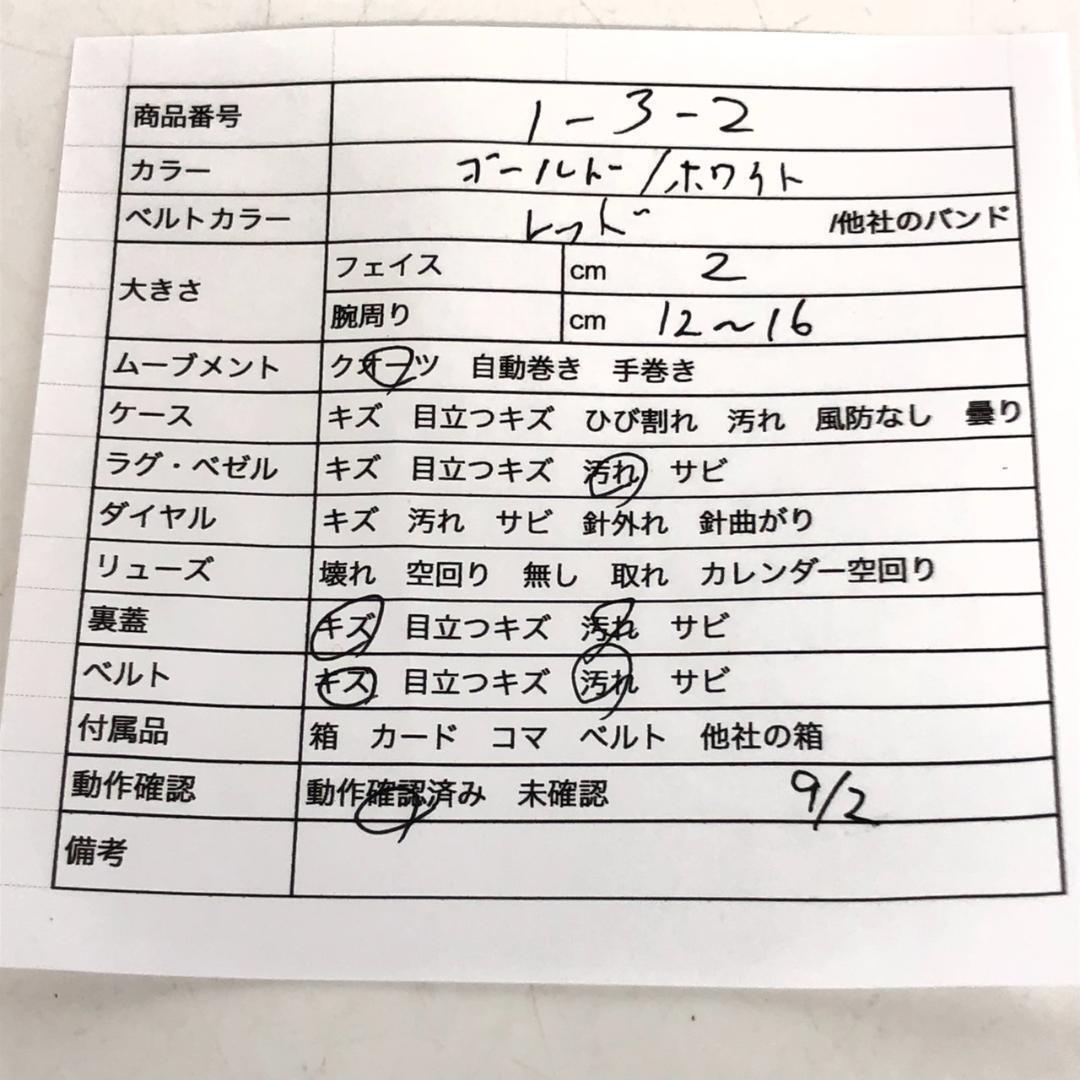 商品番号 1-3-2
カラー ゴールド/ホワイト
ベルトカラー レッド /他社のバンド
大きさ フェイス cm 2
腕周り cm 12~16
ムーブメント クオーツ 自動巻き 手巻き
ケース キズ 目立つキズ ひび割れ 汚れ 風防なし 曇り
ラグ・ベゼル キズ 目立つキズ 汚れ サビ
ダイヤル キズ 汚れ サビ 針外れ 針曲がり
リューズ 壊れ 空回り 無し 取れ カレンダー空回り
裏蓋 キズ 目立つキズ 汚れ サビ
ベルト キズ 目立つキズ 汚れ サビ
付属品 箱 カード コマ ベルト 他社の箱
動作確認 動作確認済み 未確認 9/2
備考